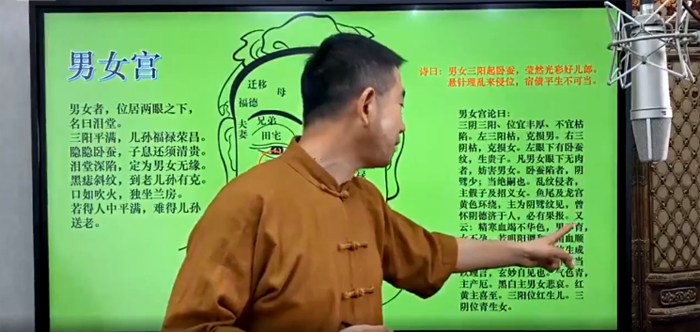 男女宫
男女者，位居两眼之下，
名曰泪堂。
三阳平满，儿孙福禄荣昌。
隐隐卧蚕，子息还须清贵。
泪堂深陷，定为男女无缘。
黑痣斜纹，到老儿孙有克。
口如吹火，独坐兰房。
若得人中平满，难得儿孙
送老。
迁移
母
福德
兄弟
夫
妻
田宅
诗曰：男女三阳起卧蚕，莹然光彩好儿郎。
悬针理乱来侵位，宿债平生不可当。
男女宫论曰：
三阴三阳，位宜丰厚、不宜枯
陷。左三阳枯，克损男。右三
阴枯，克损女。左眼下有卧蚕
纹，生贵子。凡男女眼下无肉
者，妨害男女。卧蚕陷者，阴
骘少；当绝嗣也。乱纹侵者，
主假子及招义女。鱼尾及龙宫
黄色环绕，主为阴骘纹见，曾
怀阴德济于人，必有果报。又
云：精寒血竭不华色，男
育，
血顺
生成
当
理言，玄妙自见也。气色青，
主产厄。黑白主男女悲哀。红
黄主喜至。三阳位红生儿。三
阴位青生女。